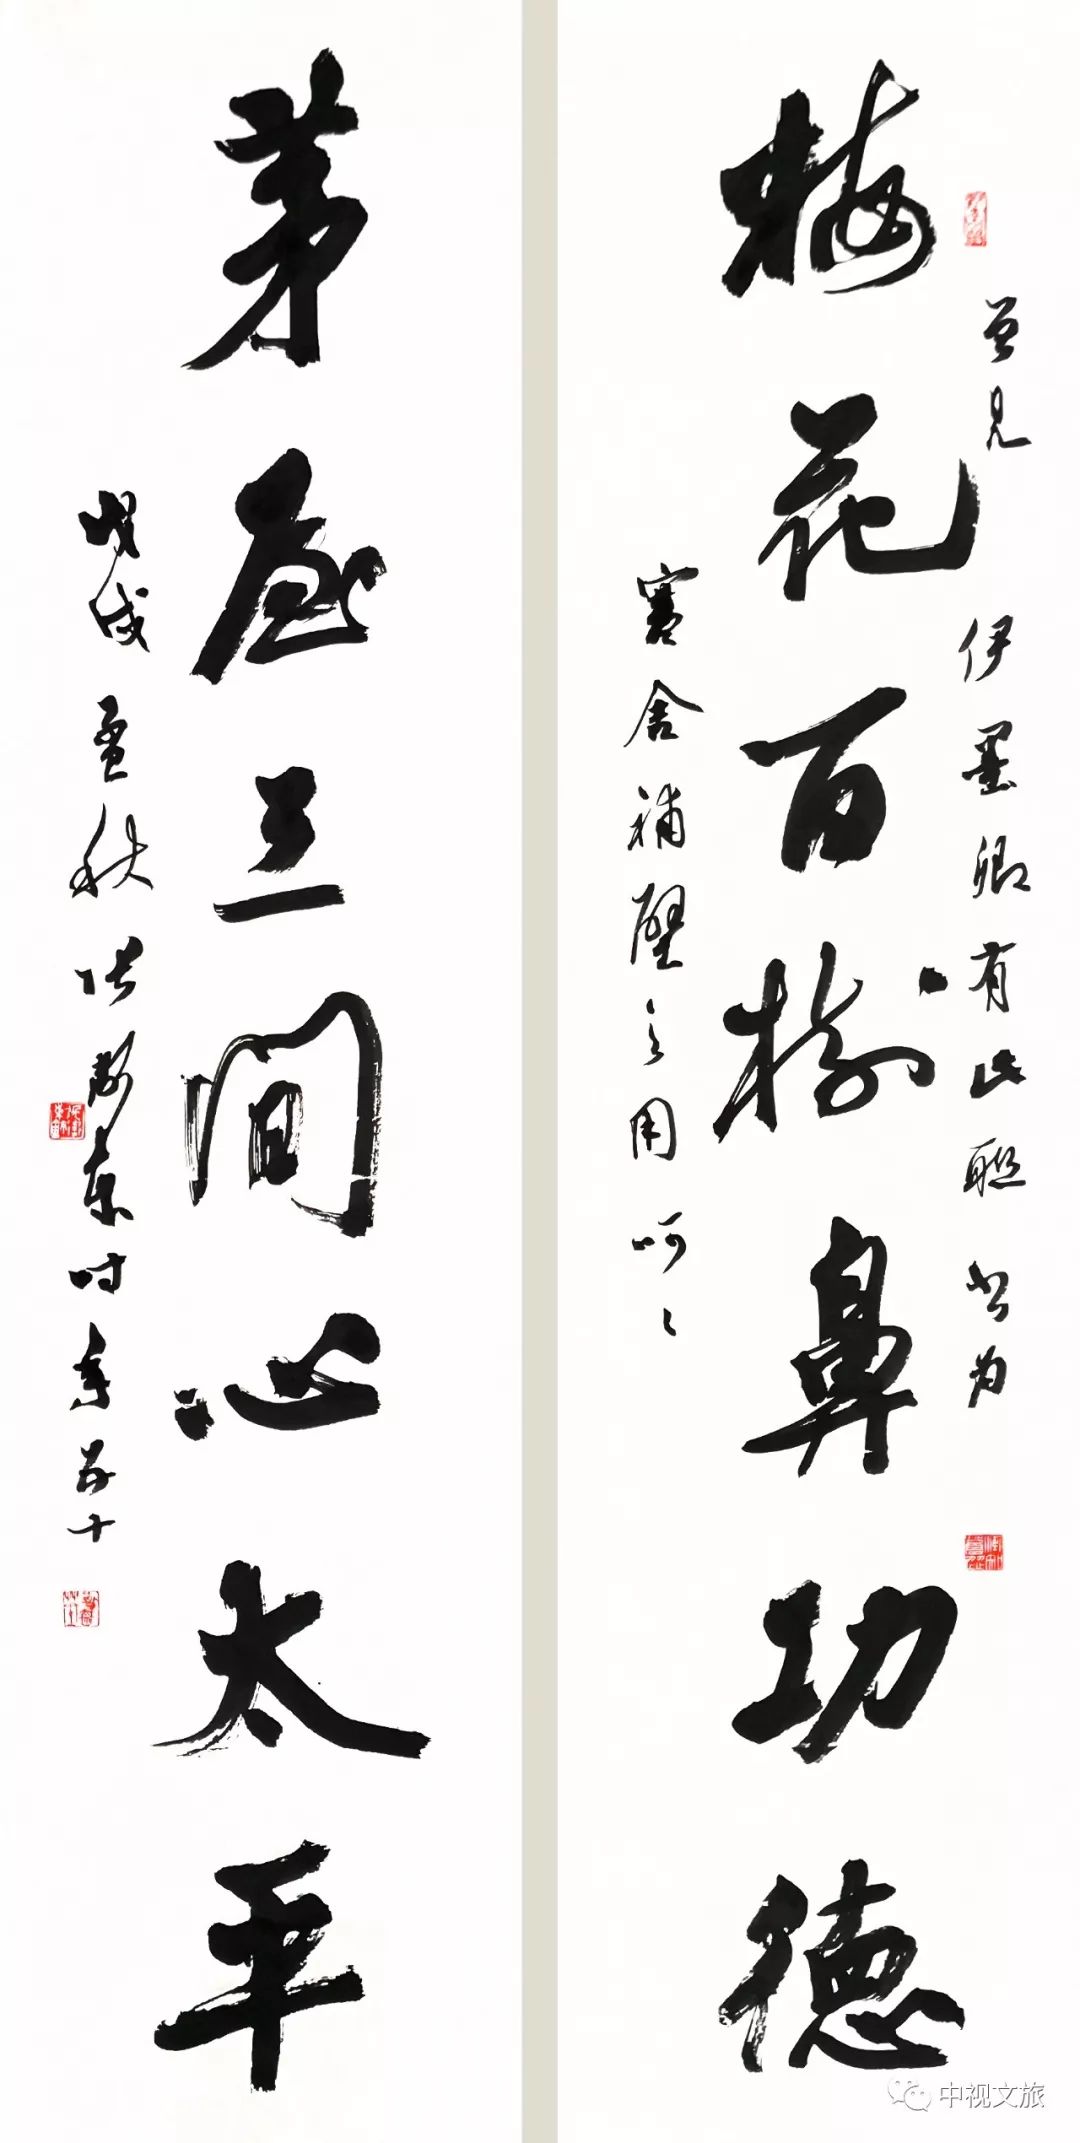 曾见伊墨卿有此联书为
梅花百树鼻功德
寒舍補壁之用呵呵
茅屋三间心太平
戊戌孟秋张东时年五十
中视文旅